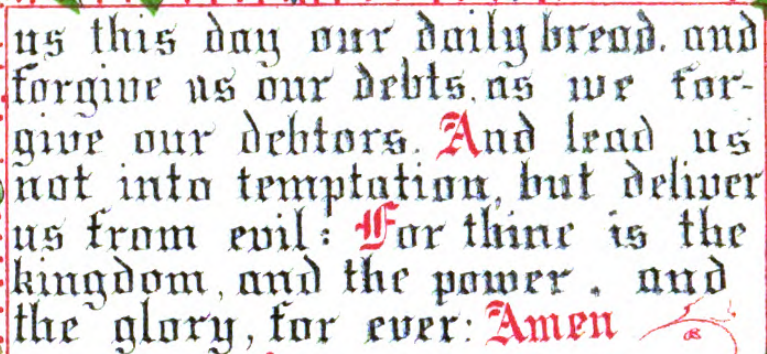 us this day our daily bread. and
forgive us our debts, as we for-
give our debtors. And lead us
not into temptation, but deliver
us from evil: For thine is the
kingdom, and the power, and
the glory, for ever: Amen